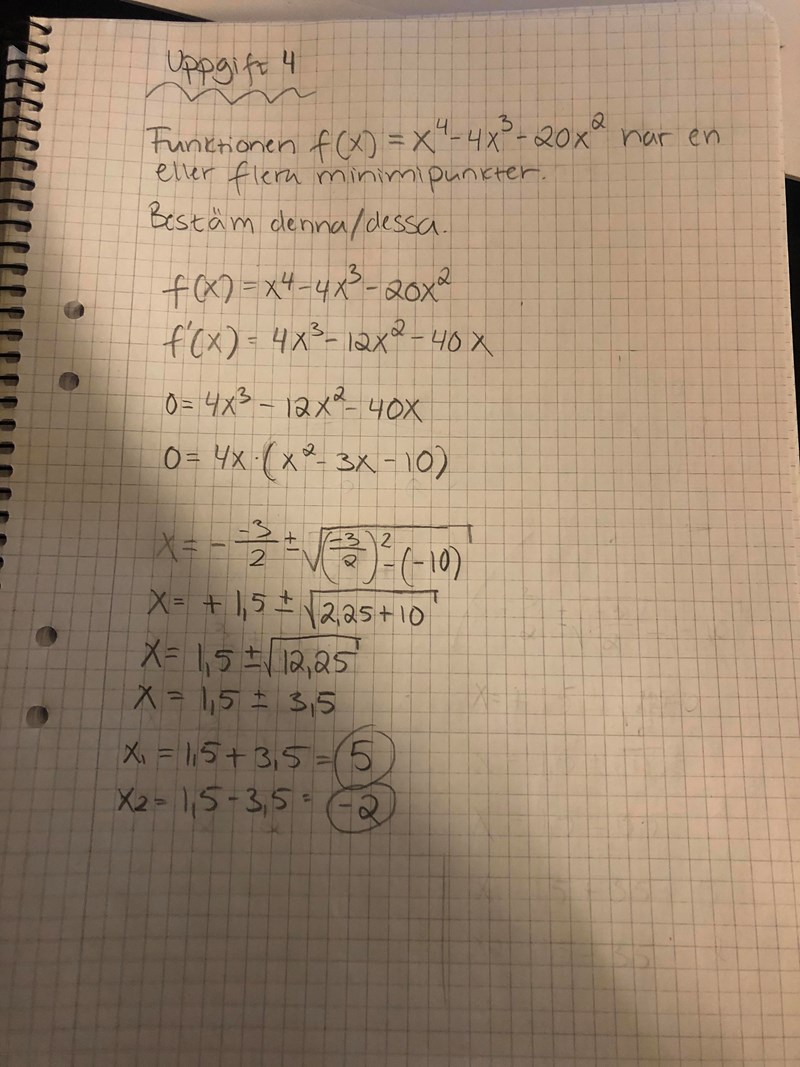 Uppgift 4
Funktionen f(x) = x⁴-4x³-20x² har en
eller flera minimipunkter.
Bestäm denna/dessa.
f(x) = x⁴-4x³-20x²
f'(x) = 4x³-12x²-40x
0= 4x³-12x²-40x
0= 4x·(x²-3x-10)
x= - -3/2 ± √((-3/2)²-(-10))
x= +1,5 ± √(2,25+10)
x= 1,5 ± √12,25
x = 1,5 ± 3,5
x₁ = 1,5+3,5 = 5
x₂ = 1,5-3,5 = -2